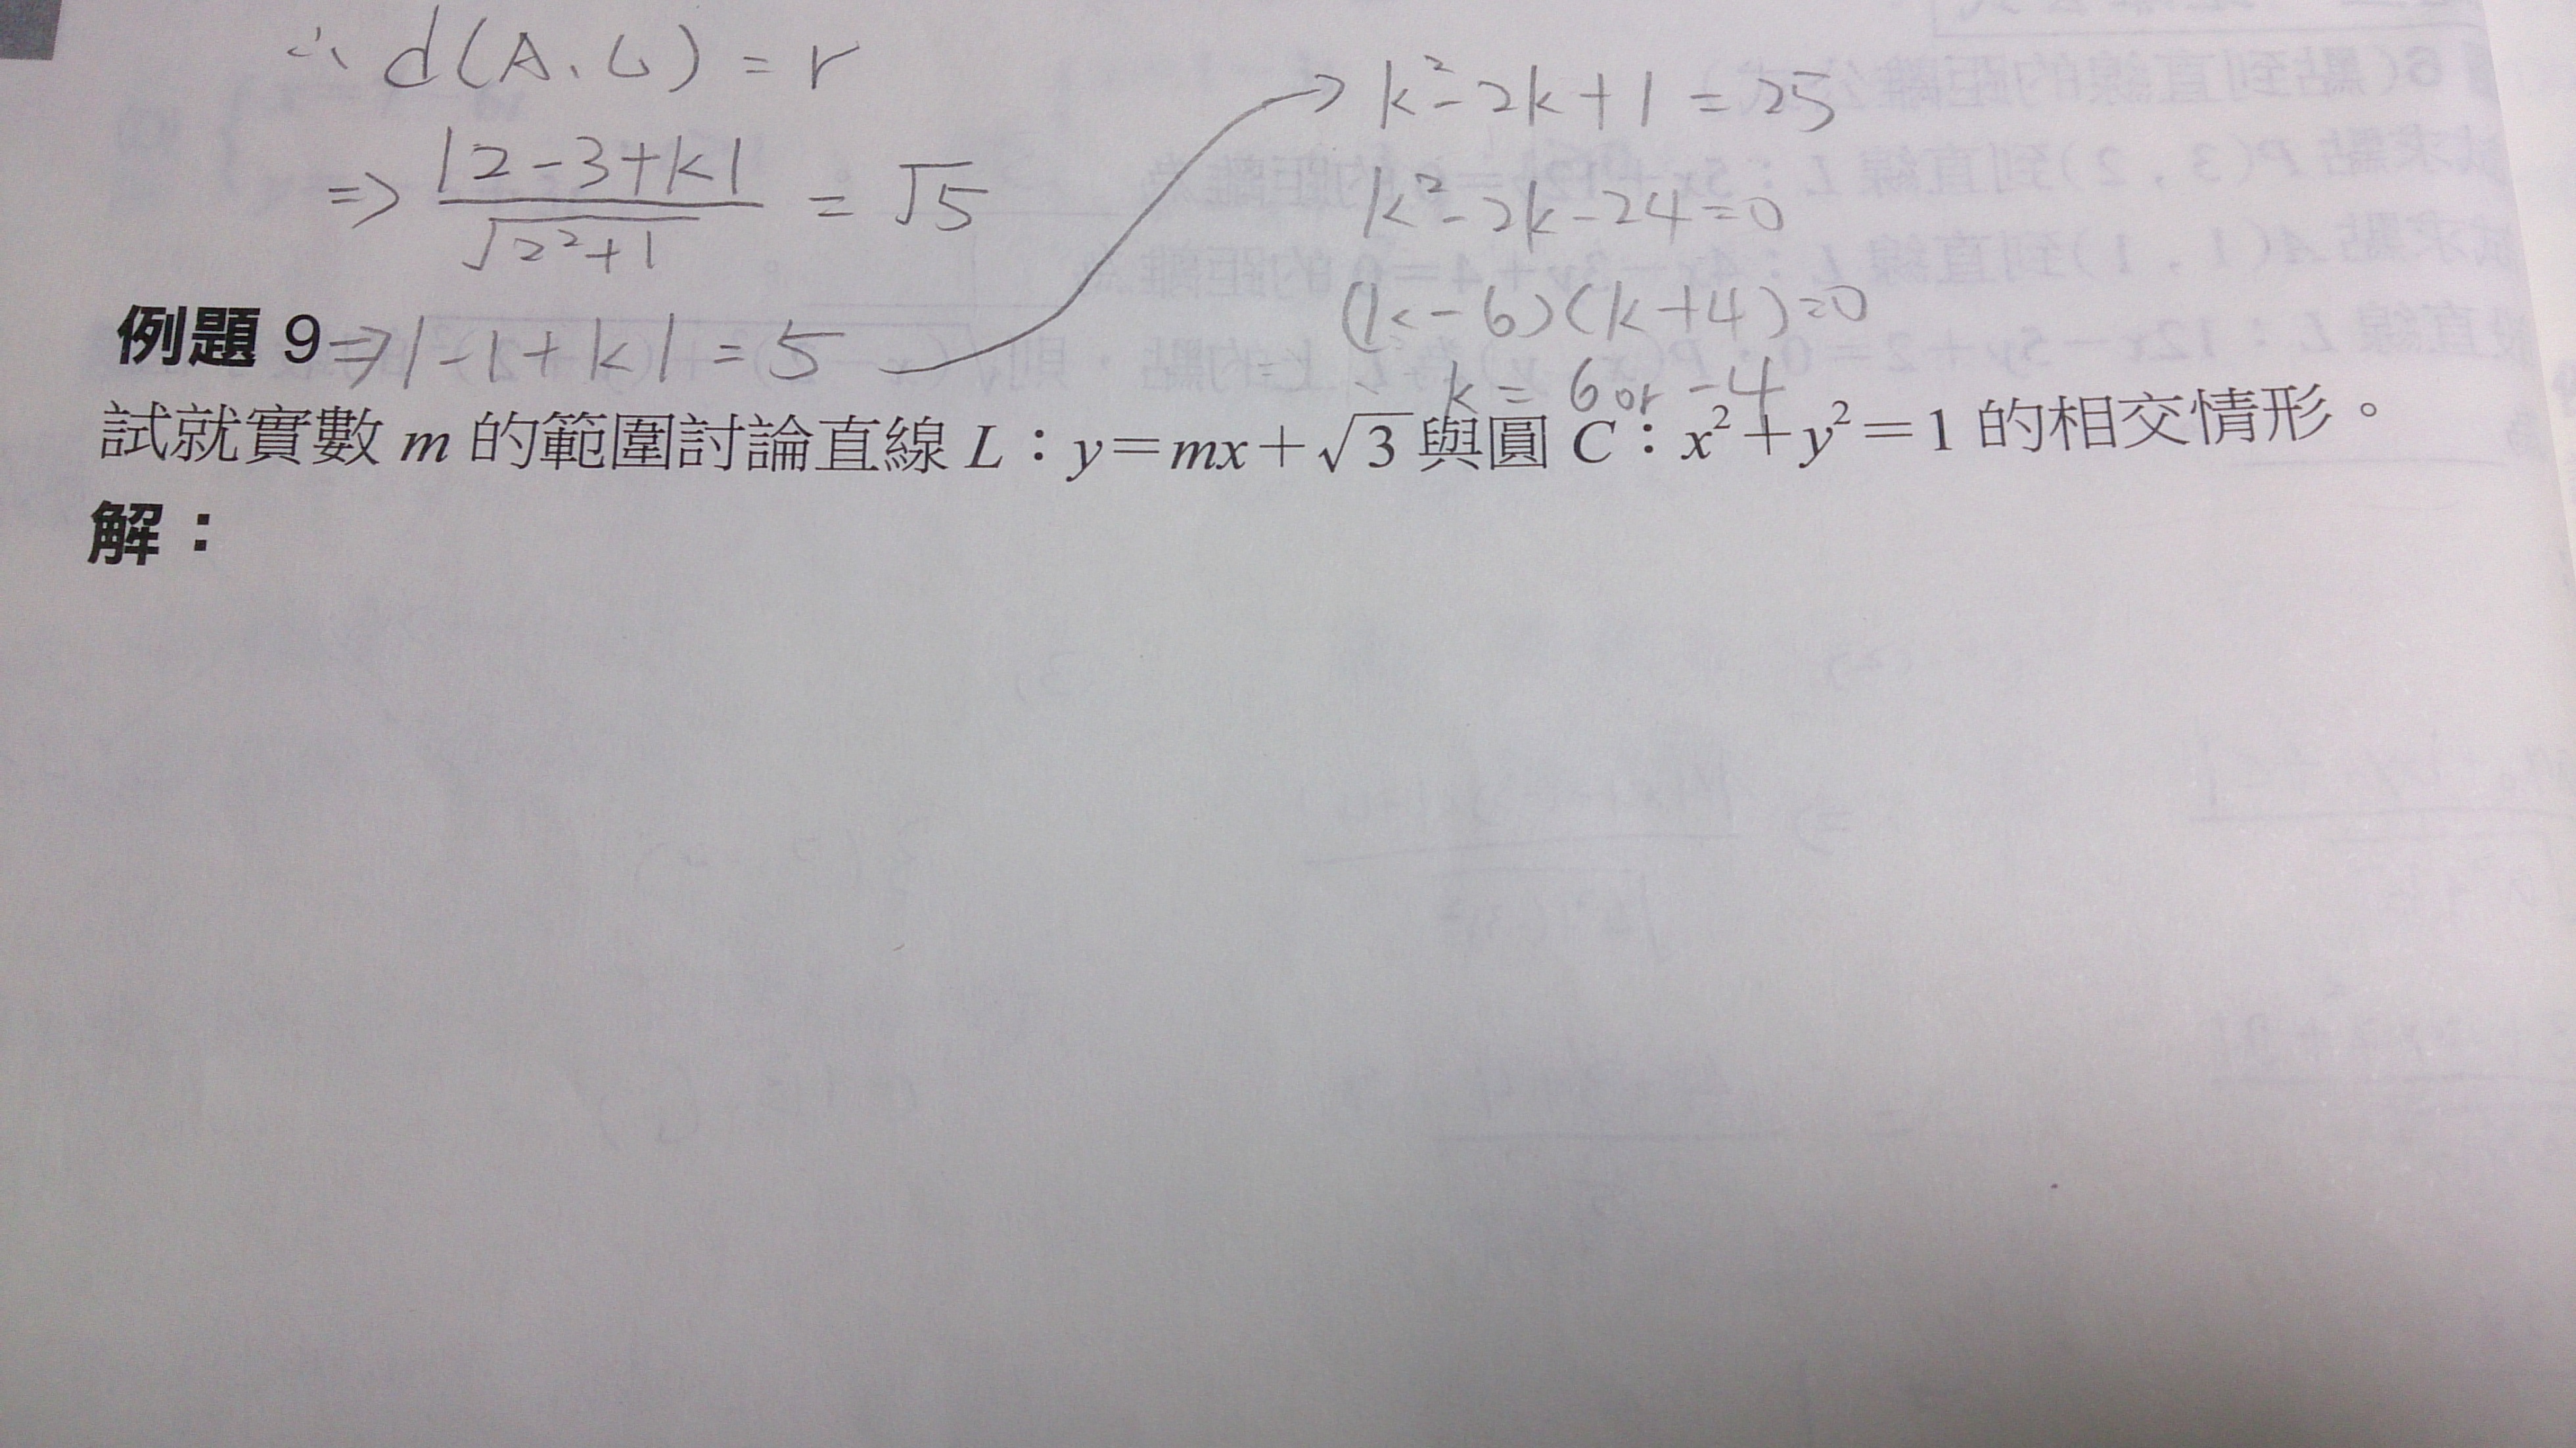 ∴ d(A、L) = r
⇒ |2-3+k| / √(2²+1) = √5
⇒ |-1+k| = 5
→ k²-2k+1 = 25
k²-2k-24=0
(k-6)(k+4)=0
k = 6 or -4
例題 9
試就實數 m 的範圍討論直線 L：y＝mx＋√3 與圓 C：x²＋y²＝1 的相交情形。
解：